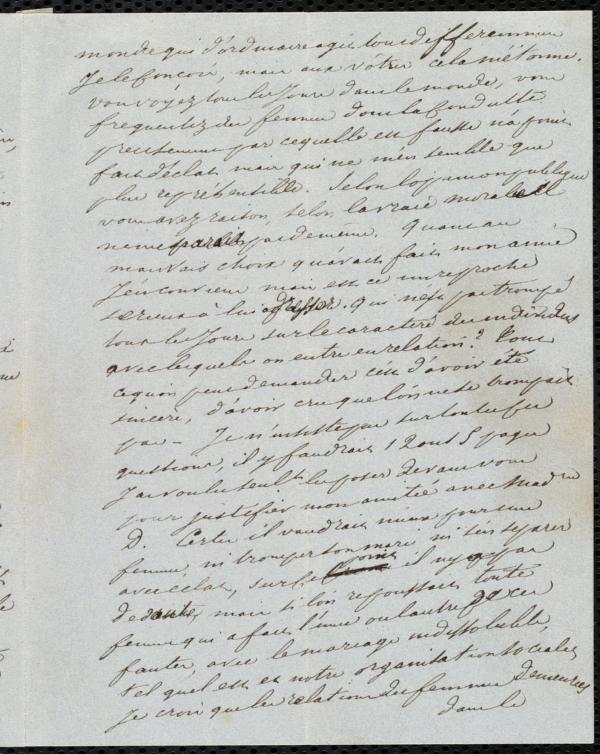 monde qui d'ordinaire agit tout différemment
Je le conçois, mais aux vôtres cela m'étonne.
vous voyez tous les jours dans le monde, vous
frequentez des femmes dont la conduite
peut etre parce qu'elle est fausse n'a point
fait d'éclat, mais qui ne m'en semble que
plus repréhensible. Selon l'opinion publique
vous avez raison, selon la vraie morale il
ne me parait pas de même. Quant au
mauvais choix qu'avait fait mon amie
J'en conviens mais est ce un reproche
serieux à lui adresser. Qui n'est pas trompé
tous les Jours sur le caractère des individus
avec lesquels on entre en relation? Tout
ce qu'on peut demander c'est d'avoir été
sincère, d'avoir cru que l'on ne se trompait
pas – Je n'insiste pas sur toutes ces
questions, il y faudrait 12 ou 15 pages
J'ai voulu seult les poser devant vous
pour justifier mon amitié avec Madme
D. Certes il vaudrait mieux pour une
femme ni tromper son mari ni s'en séparer
avec éclat, sur ce point il n'y a pas
de doute, mais si l'on repoussait toute
femme qui a fait l'une ou l'autre de ces
fautes, avec le mariage indissoluble,
tel quel est et notre organisation sociale,
Je crois que les relations des femmes demeurées
dans le